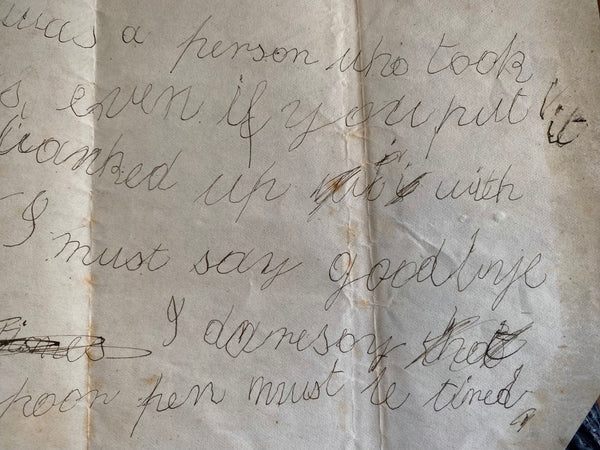 was a person who took
s, even if you put it
cranked up with
I must say good bye
I daresay that
poor pen must be tired